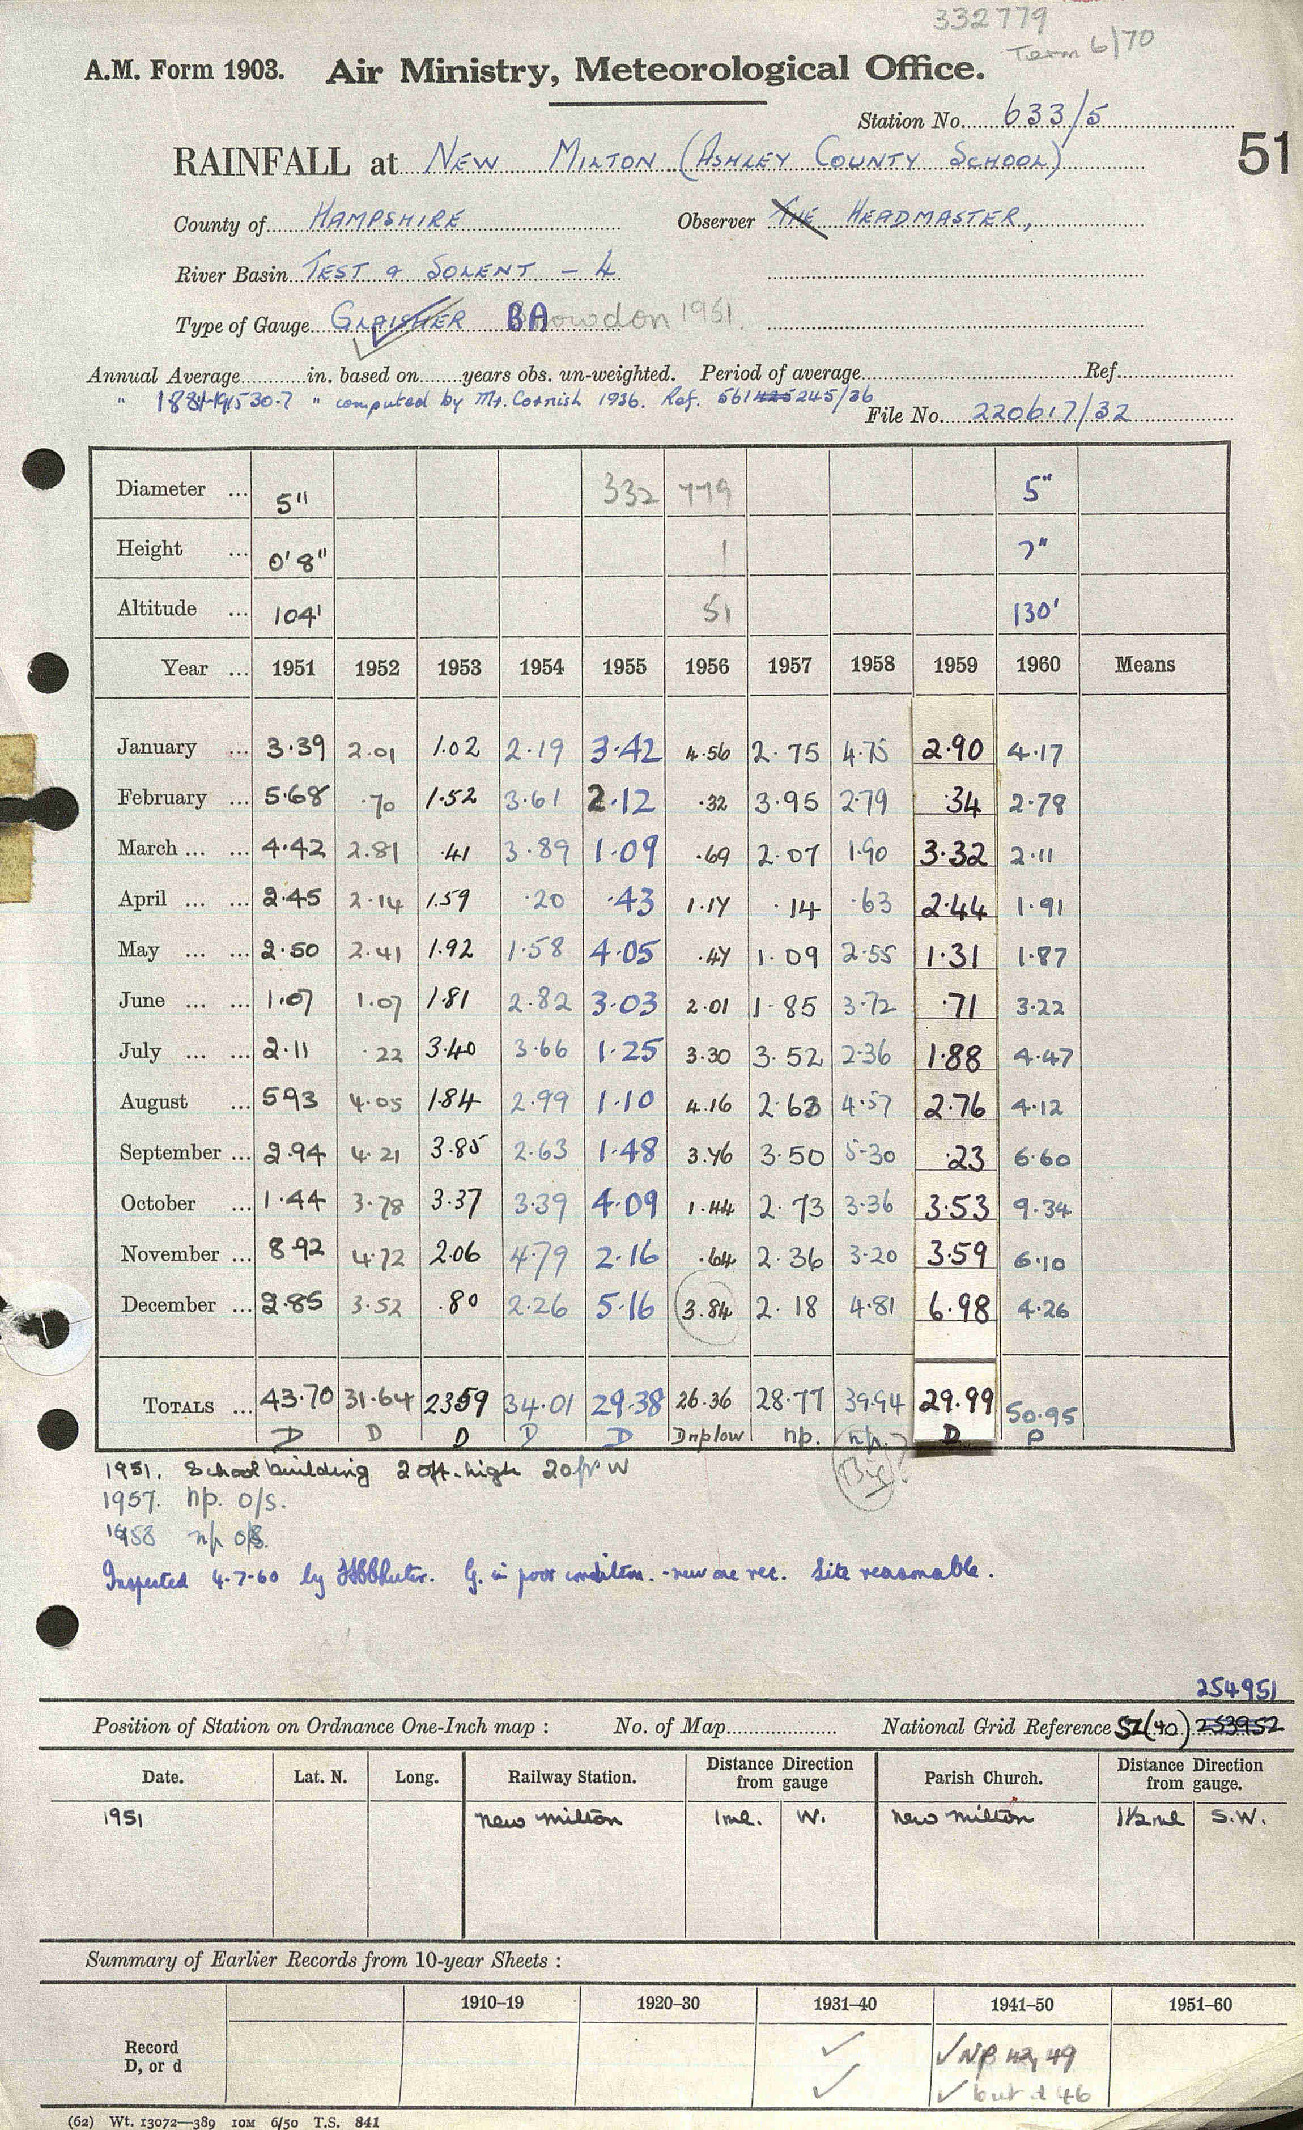 332779
Term 6/70
A.M. Form 1903. Air Ministry, Meteorological Office.
Station No. 633/5
51
RAINFALL at NEW MILTON (ASHLEY COUNTY SCHOOL)
County of HAMPSHIRE Observer THE HEADMASTER,
River Basin TEST & SOLENT - 4
Type of Gauge GLAISHER BA Snowdon 1961.
Annual Average in. based on years obs. un-weighted. Period of average Ref
" 1881-1915 30.7 " computed by Mr. Cornish 1936. Ref. 561 245/36
File No. 220617/32
Diameter ... 5" 332 779 5"
Height ... 0' 8" 1 7"
Altitude ... 104' 51 130'
Year ... 1951 1952 1953 1954 1955 1956 1957 1958 1959 1960 Means
January ... 3.39 2.01 1.02 2.19 3.42 4.56 2.75 4.75 2.90 4.17
February ... 5.68 .70 1.52 3.61 2.12 .32 3.95 2.79 .34 2.78
March ... ... 4.42 2.81 .41 3.89 1.09 .69 2.07 1.90 3.32 2.11
April ... ... 2.45 2.14 1.59 .20 .43 1.17 .14 .63 2.44 1.91
May ... ... 2.50 2.41 1.92 1.58 4.05 .47 1.09 2.55 1.31 1.87
June ... ... 1.07 1.07 1.81 2.82 3.03 2.01 1.85 3.72 .71 3.22
July ... ... 2.11 .22 3.40 3.66 1.25 3.30 3.52 2.36 1.88 4.47
August ... 5.93 4.05 1.84 2.99 1.10 4.16 2.63 4.57 2.76 4.12
September ... 2.94 4.21 3.85 2.63 1.48 3.76 3.50 5.30 .23 6.60
October ... 1.44 3.78 3.37 3.39 4.09 1.44 2.73 3.36 3.53 9.34
November ... 8.92 4.72 2.06 4.79 2.16 .64 2.36 3.20 3.59 6.10
December ... 2.85 3.52 .80 2.26 5.16 3.84 2.18 4.81 6.98 4.26
TOTALS ... 43.70 31.64 23.59 34.01 29.38 26.36 28.77 39.94 29.99 50.95
D D D D D Dnplow np. np.? D P
Big?
1951. School building 20ft. high 20ft W
1957. np. o/s.
1958 np o/s.
Inspected 4-7-60 by G. in poor condition. - new one rec. Site reasonable.
254951
Position of Station on Ordnance One-Inch map : No. of Map National Grid Reference SZ(40) 253952
Date. Lat. N. Long. Railway Station. Distance from Direction gauge Parish Church. Distance from Direction gauge.
1951 New Milton 1ml. W. New Milton 1½ml S.W.
Summary of Earlier Records from 10-year Sheets :
1910–19 1920–30 1931–40 1941–50 1951–60
Record
D, or d
✓ ✓ NP 42, 49
✓ ✓ but d 46
(62) Wt. 13072—389 10M 6/50 T.S. 841